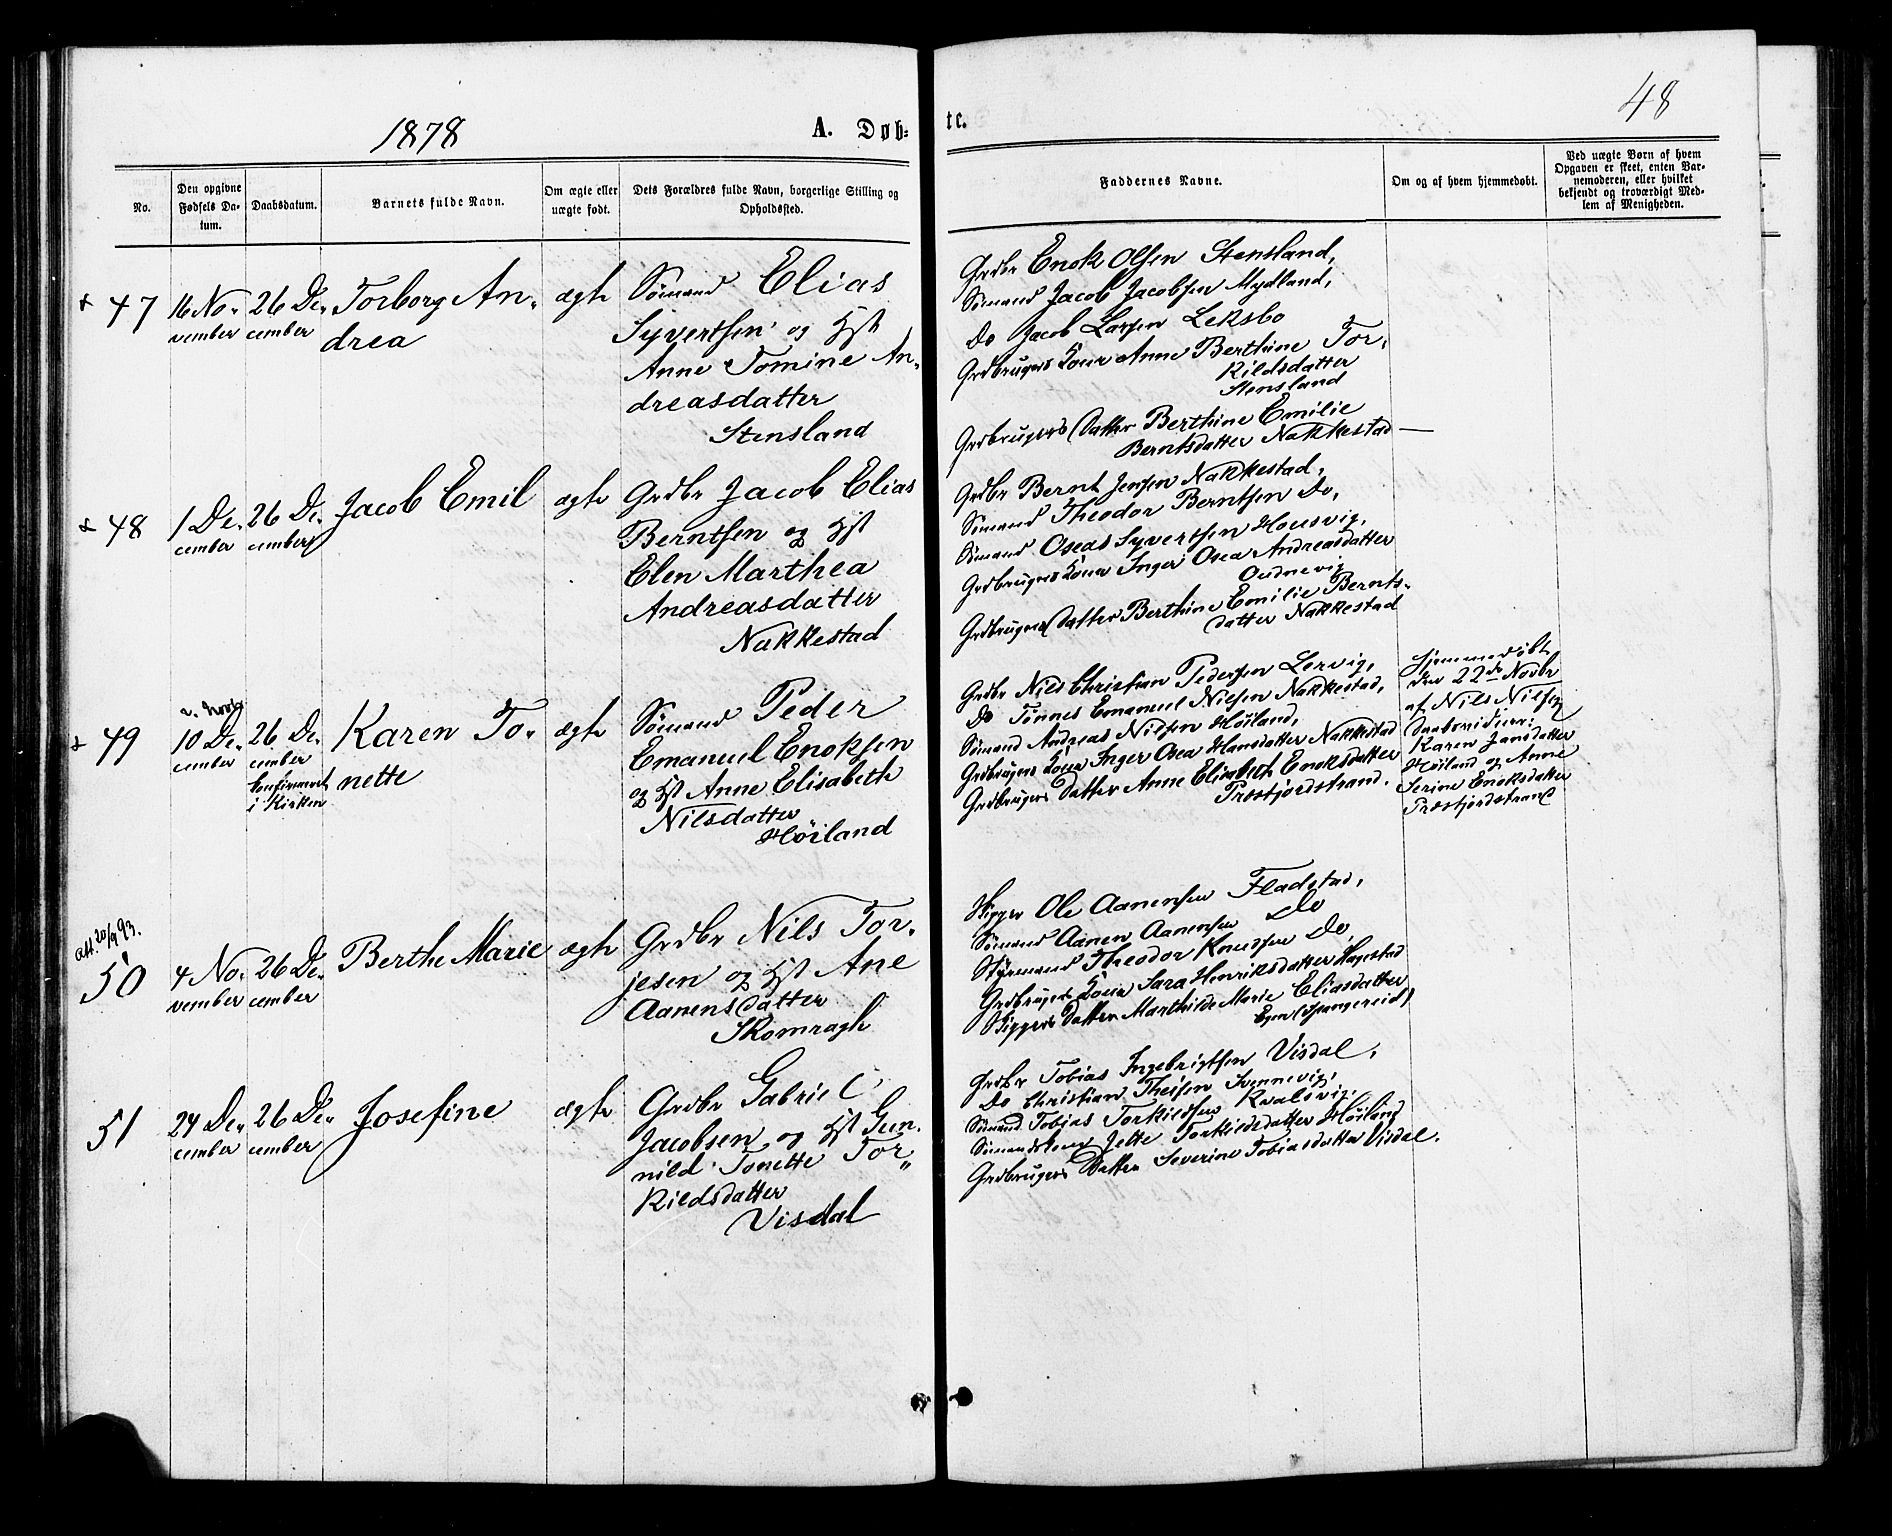 48
1878
A. Døb-
te.
No.
Den opgivne Fødsels Da-tum.
Daabsdatum.
Barnets fulde Navn.
Om ægte eller uægte født.
Dets Forældres fulde Navn, borgerlige Stilling og Opholdssted.
Faddernes Navne.
Om og af hvem hjemmedøbt.
Ved uægte Børn af hvem
Opgaven er skeet, enten Bar-
nemoderen, eller hvilket
bekjendt og troværdigt Med-
lem af Menigheden.
47
16 No-
vember
26 De-
cember
Torborg An-
drea
ægte
Sømand Elias
Syvertsen og Hst
Anne Tomine An-
dreasdatter
Stensland
Grdbr Enok Olsen Stensland,
Sømand Jacob Jacobsen Mydland,
Do Jacob Larsen Leksbo
Grdbrugers Kone Anne Berthine Tor-
kildsdatter
Stensland
Grdbrugers Datter Berthine Emilie
Berntsdatter Nakkestad —
48
1 De-
cember
26 De-
cember
Jacob Emil
ægte
Grdbr Jacob Elias
Berntsen og Hst
Elen Marthea
Andreasdatter
Nakkestad
Grdbr Bernt Jensen Nakkestad,
Sømand Theodor Berntsen Do,
Sømand Oseas Syvertsen Housvig,
Grdbrugers Kone Inger Osea Andreasdatter
Oudnevig
Grdbrugers Datter Berthine Emilie Bernts-
datter Nakkestad
49
10 De-
cember
26 De-
cember
Confirmeret
i Kirken
Karen To-
nette
ægte
Sømand Peder
Emanuel Enoksen
og Hst Anne Elisabeth
Nilsdatter
Høiland
Grdbr Nils Christian Pedersen Lervig,
Do Tønnes Emanuel Nielsen Nakkestad,
Sømand Andreas Nilsen Høiland,
Grdbrugers Kone Inger Osea Hansdatter Nakkestad
Grdbrugers Datter Anne Elisabeth Enoksdatter
Præstfjordstrand.
Hjemmedøbt
den 22de Novbr
af Nils Nilsen
Daabsvidner:
Karen Jansdatter
Høiland og Anne
Serine Enoksdatter
Præstfjordstrand
Att. 20/9 93.
50
4 No-
vember
26 De-
cember
Berthe Marie
ægte
Grdbr Nils Tor-
jesen og Hst Ane
Aanensdatter
Skomragh
Skipper Ole Aanensen Fladstad,
Sømand Aanen Aanensen Do
Styrmand Theodor Knudsen Do,
Grdbrugers Kone Sara Henriksdatter Hagestad
Skippers Datter Marthilde Marie Eliasdatter
(Spangereid)
51
24 De-
cember
26 De-
cember
Josefine
ægte
Grdbr Gabriel
Jacobsen og Hst Gun-
nild Tonette Tor-
kildsdatter
Visdal
Grdbr Tobias Ingebrigtsen Visdal,
Do Christian Theisen Svennevig,
Sømand Tobias Torkildsen Kvalsvig,
Sømandskone Jette Torkildsdatter Høiland
Grdbrugers Datter Severine Tobiasdatter Visdal.